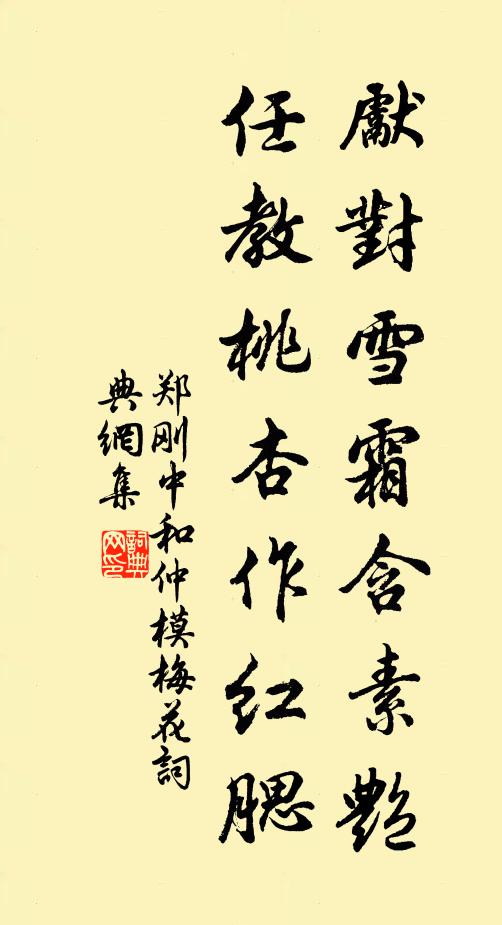 獻對雪霜含素豔
任教桃杏作红腮
郑刚中和仲模梅花詞
典網集
詞典
网印